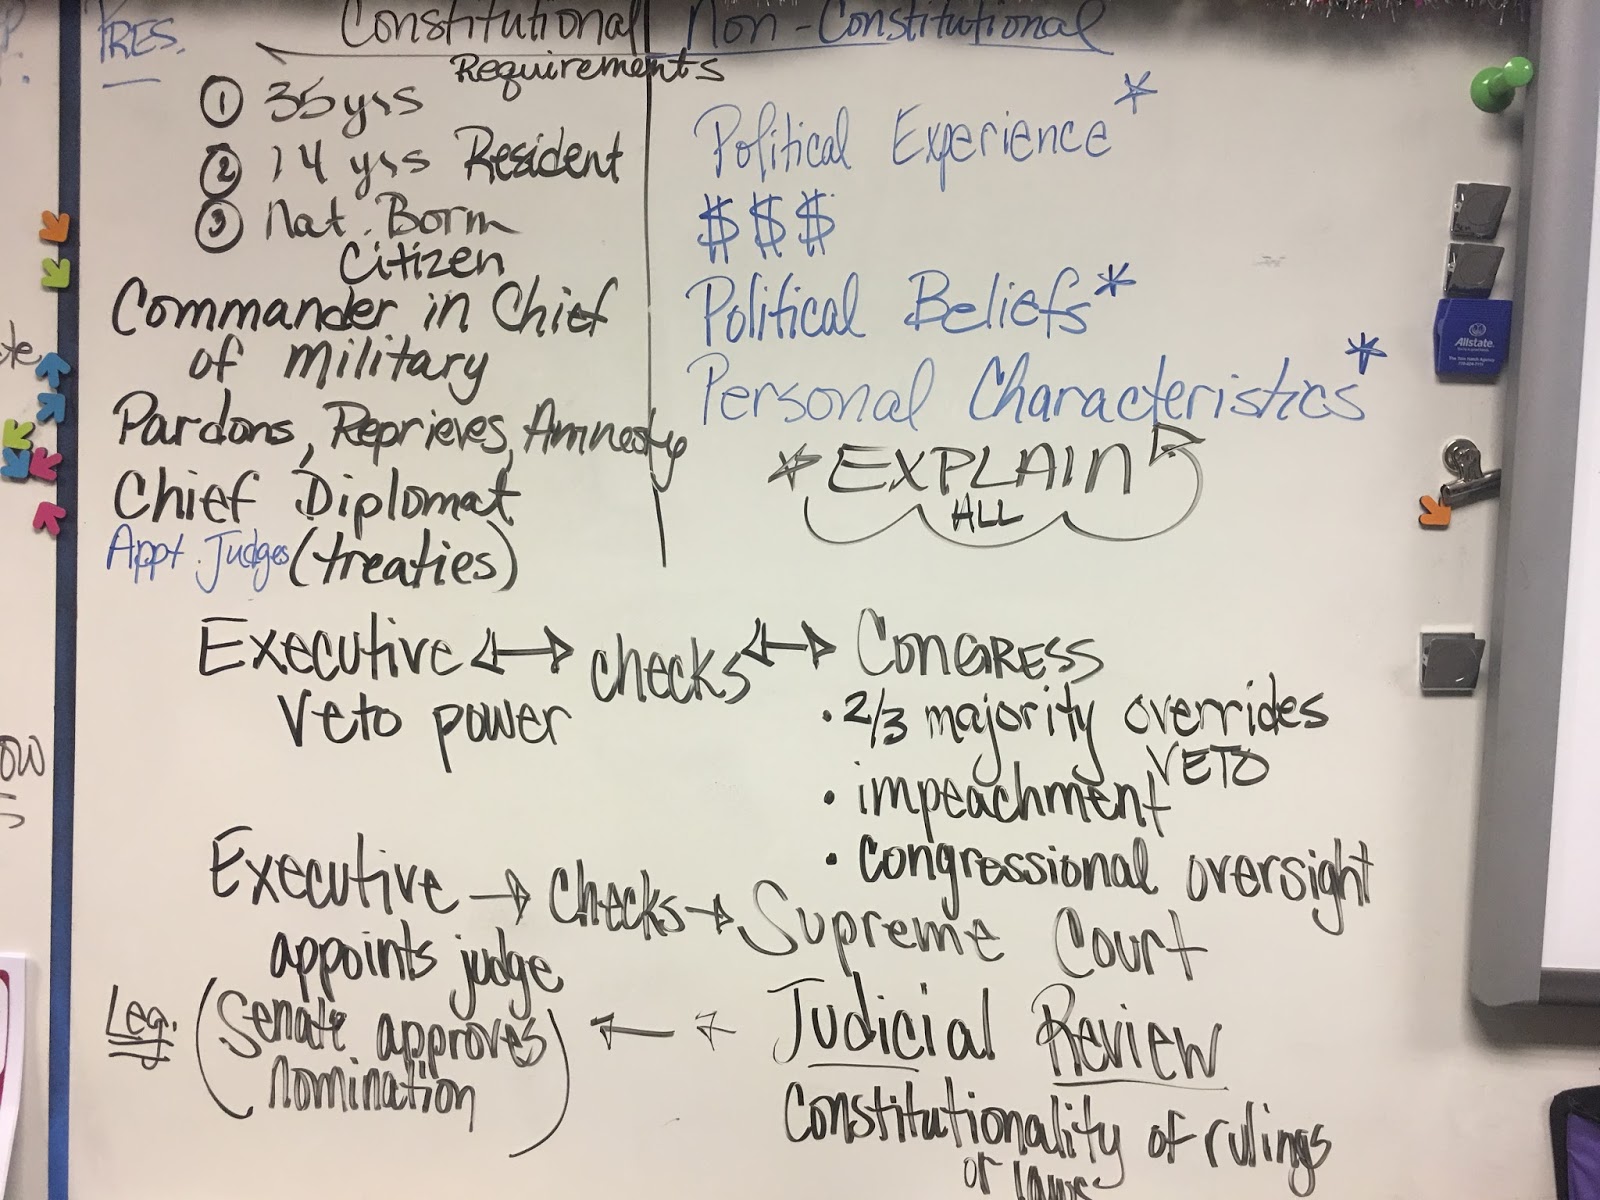 PRES.
Constitutional
Non-Constitutional
Requirements
① 35 yrs
② 14 yrs Resident
③ Nat. Born
Citizen
Commander in Chief
of military
Pardons, Reprieves, Amnesty
Chief Diplomat
Appt. Judges (treaties)
Political Experience*
$ $ $
Political Beliefs*
Personal Characteristics*
* EXPLAIN
ALL
Executive ↔ checks ↔ CONGRESS
Veto power
• 2/3 majority overrides
VETO
• impeachment
• congressional oversight
Executive → checks → Supreme Court
appoints judge
Leg. (Senate approves
nomination)
← ← Judicial Review
Constitutionality of rulings
or laws
Allstate.